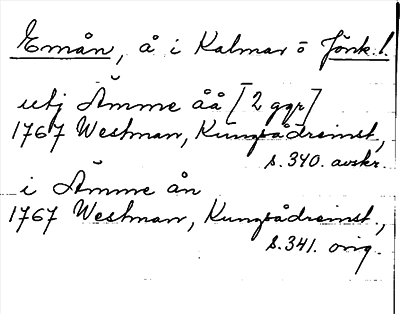 Emån, å i Kalmar o Jönk. l.
utj Ämme åå [2 ggr]
1767 Westman, Kungsådreinst,
s. 340. avskr.
i Ämme ån
1767 Westman, Kungsådreinst.,
s. 341. orig.